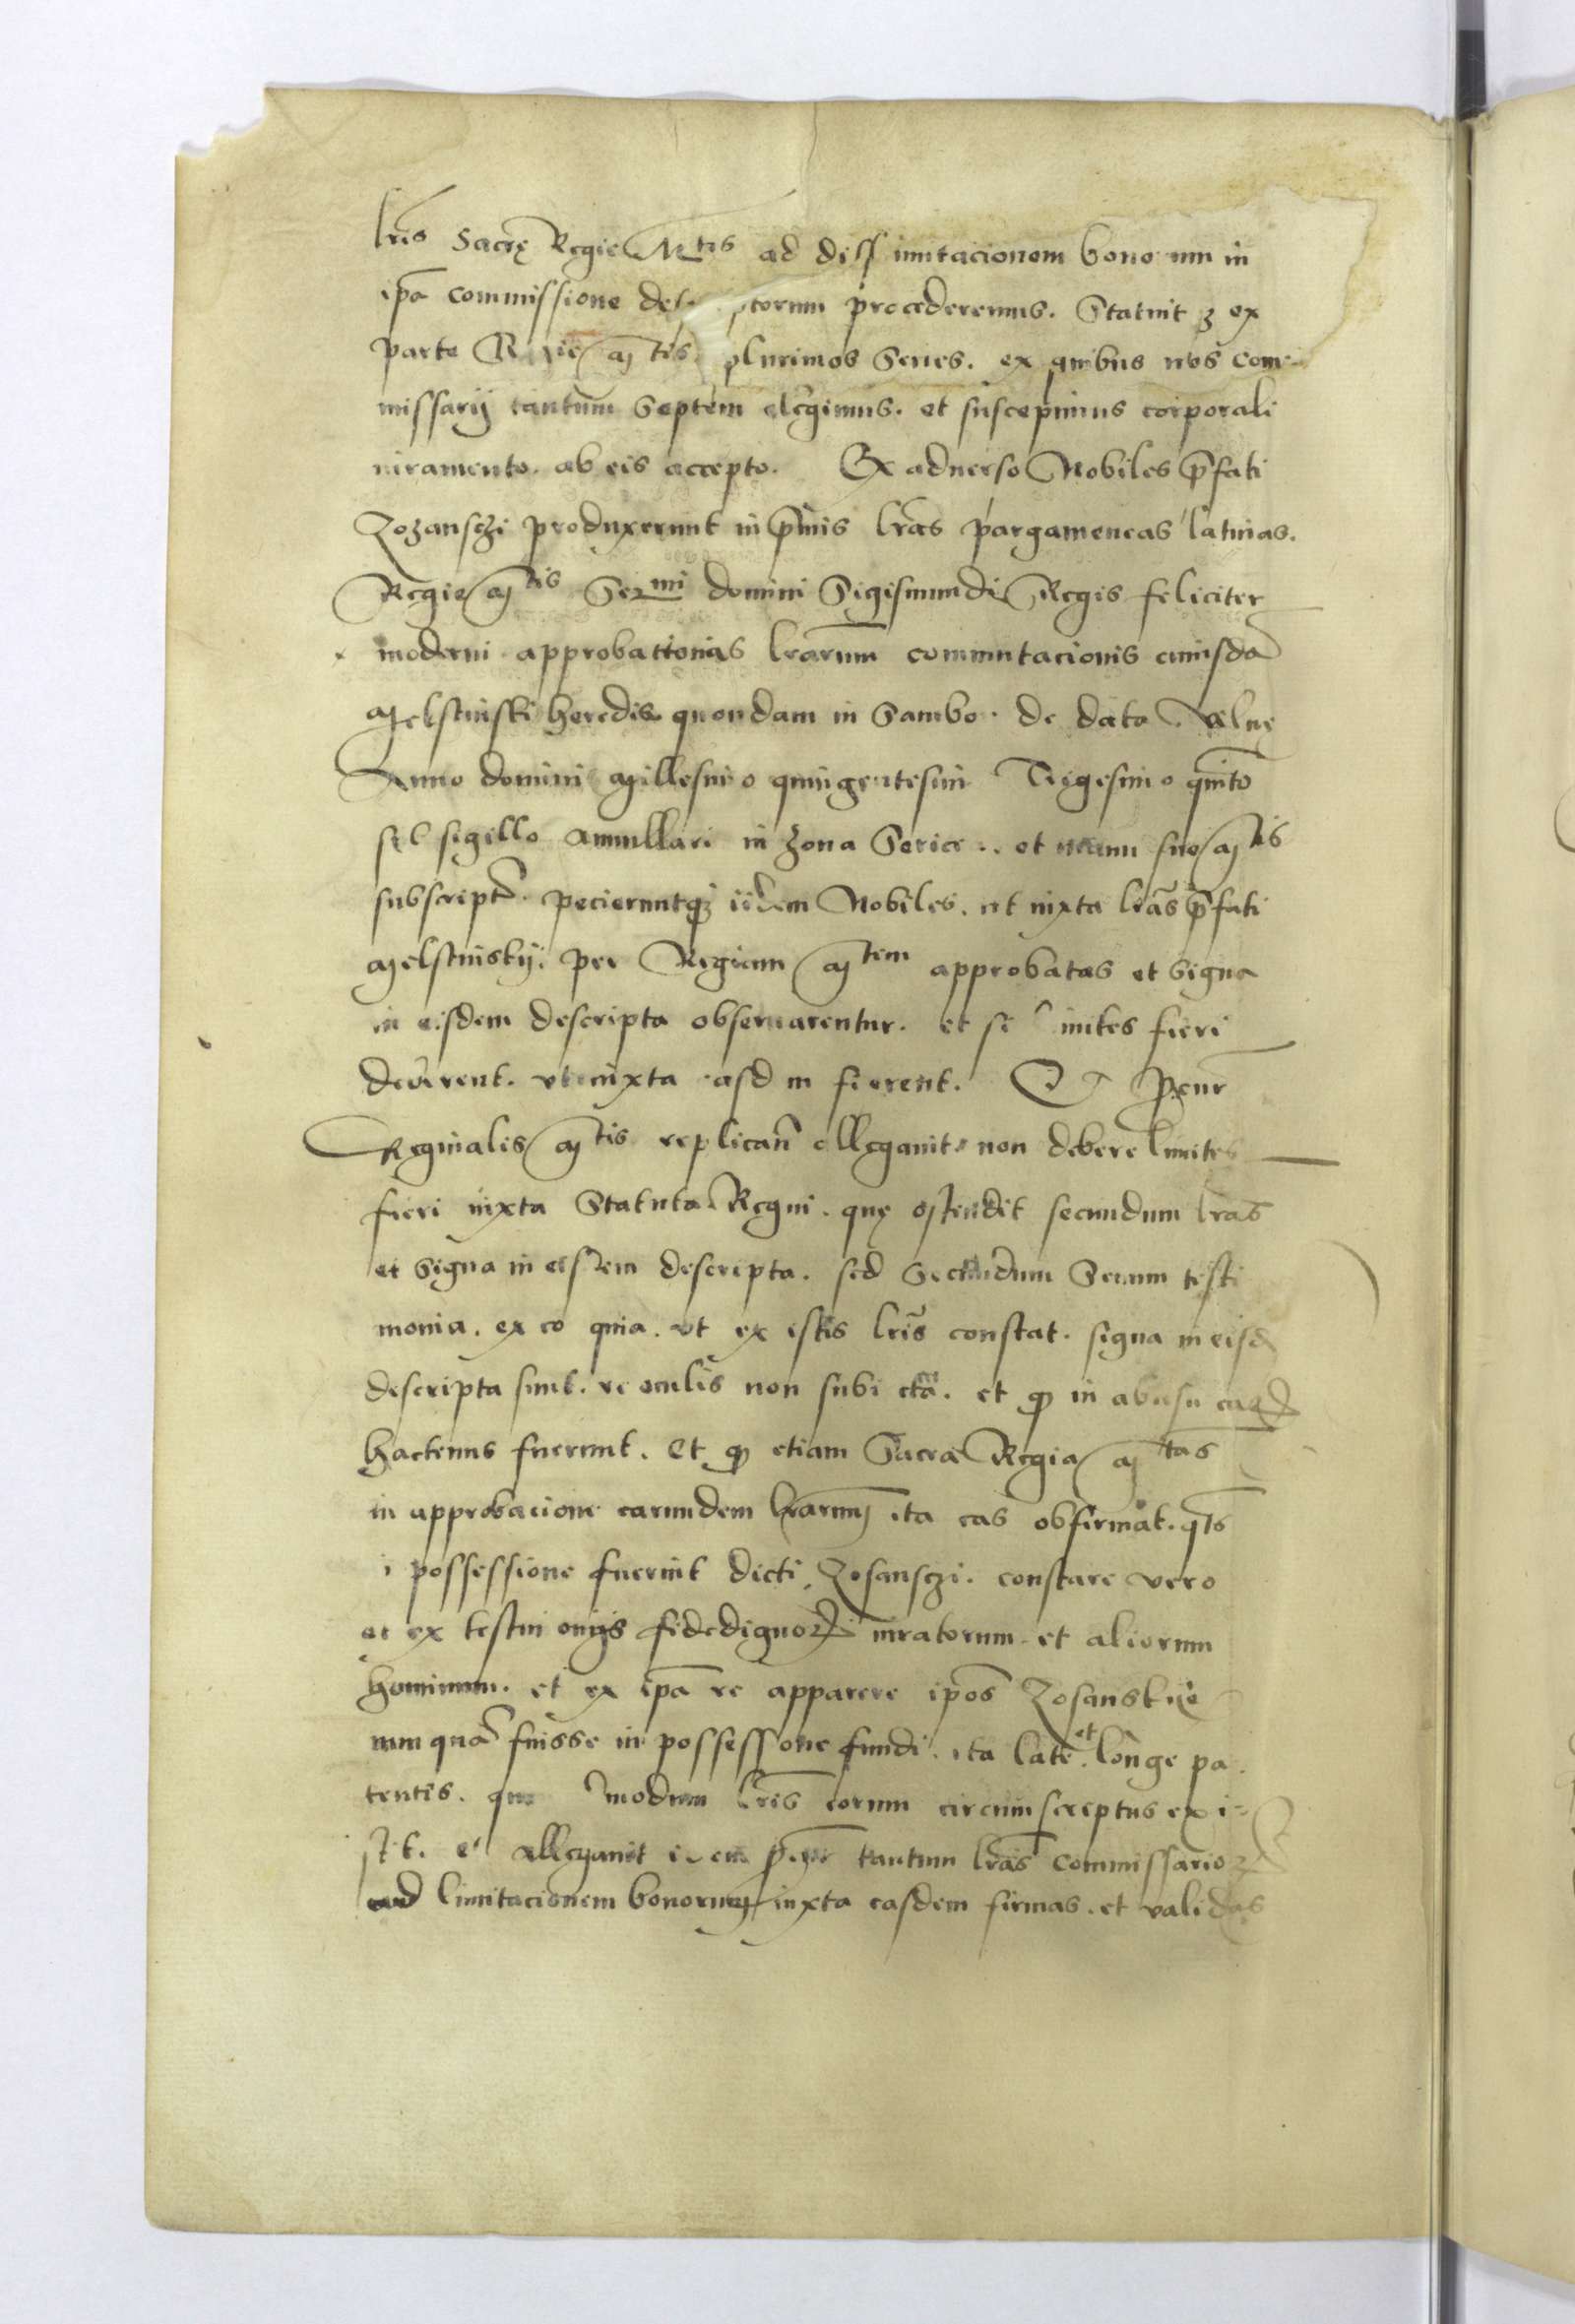 lris Sacrę Regie Mtis ad dislimitacionem bonorum in
ipa commissione descriptorum procederemus. Statuit qz ex
parte Regie Mtis plurimos Senes. ex quibus nos com-
missarij tantum Septem elegimus. et suscepimus corporali
iuramento. ab eis accepto. Ex aduerso Nobiles pfati
Zozansczi produxerunt in pmis lras pargameneas latinas.
Regie Mtis Sermi domini Sigismundi Regis feliciter
moderni approbationis lrarum commutacionis cuiusda
Melstinski heredis quondam in Sambor. de data Vilnę
Anno domini Millesimo quingentesimo Trigesimo quinto
sub sigillo annullari in zona Sericea. et manu sue Mtis
subscript. pecieruntqz iidem Nobiles. ut iuxta lras pfati
Melstinskij. per Regiam Mtem approbatas et signa
in eisdem descripta obseruarentur. et si limites fieri
deberent. vt iuxta easdem fierent. Et pcur
Reginalis Mtis replican allegauit. non debere limites
fieri iuxta Statuta Regni. quę ostendit secundum lras
et signa in eisdem descripta. sed secundum Senum testi
monia. ex eo quia. ut ex istis lris constat. signa in eisd
descripta sunt. re oculis non subiecta. et qp in abusu eaqd
hactenus fuerunt. Et qp etiam Sacra Regia Mtas
in approbacione earundem lrarum ita eas obfirmat. qts
in possessione fuerint dicti Zosansczi. constare vero
et ex testimonijs fidedignor iuratorum et aliorum
hominum. et ex ipa re apparere ipos Zosanskije
numqua fuisse in possessione fundi. ita late et longe pa-
tentis. quemadmodum lris eorum circumscriptus exi-
stit. et allegauit idem pcur tantum lras commissarior
ad limitacionem bonorum iuxta easdem firmas. et validas